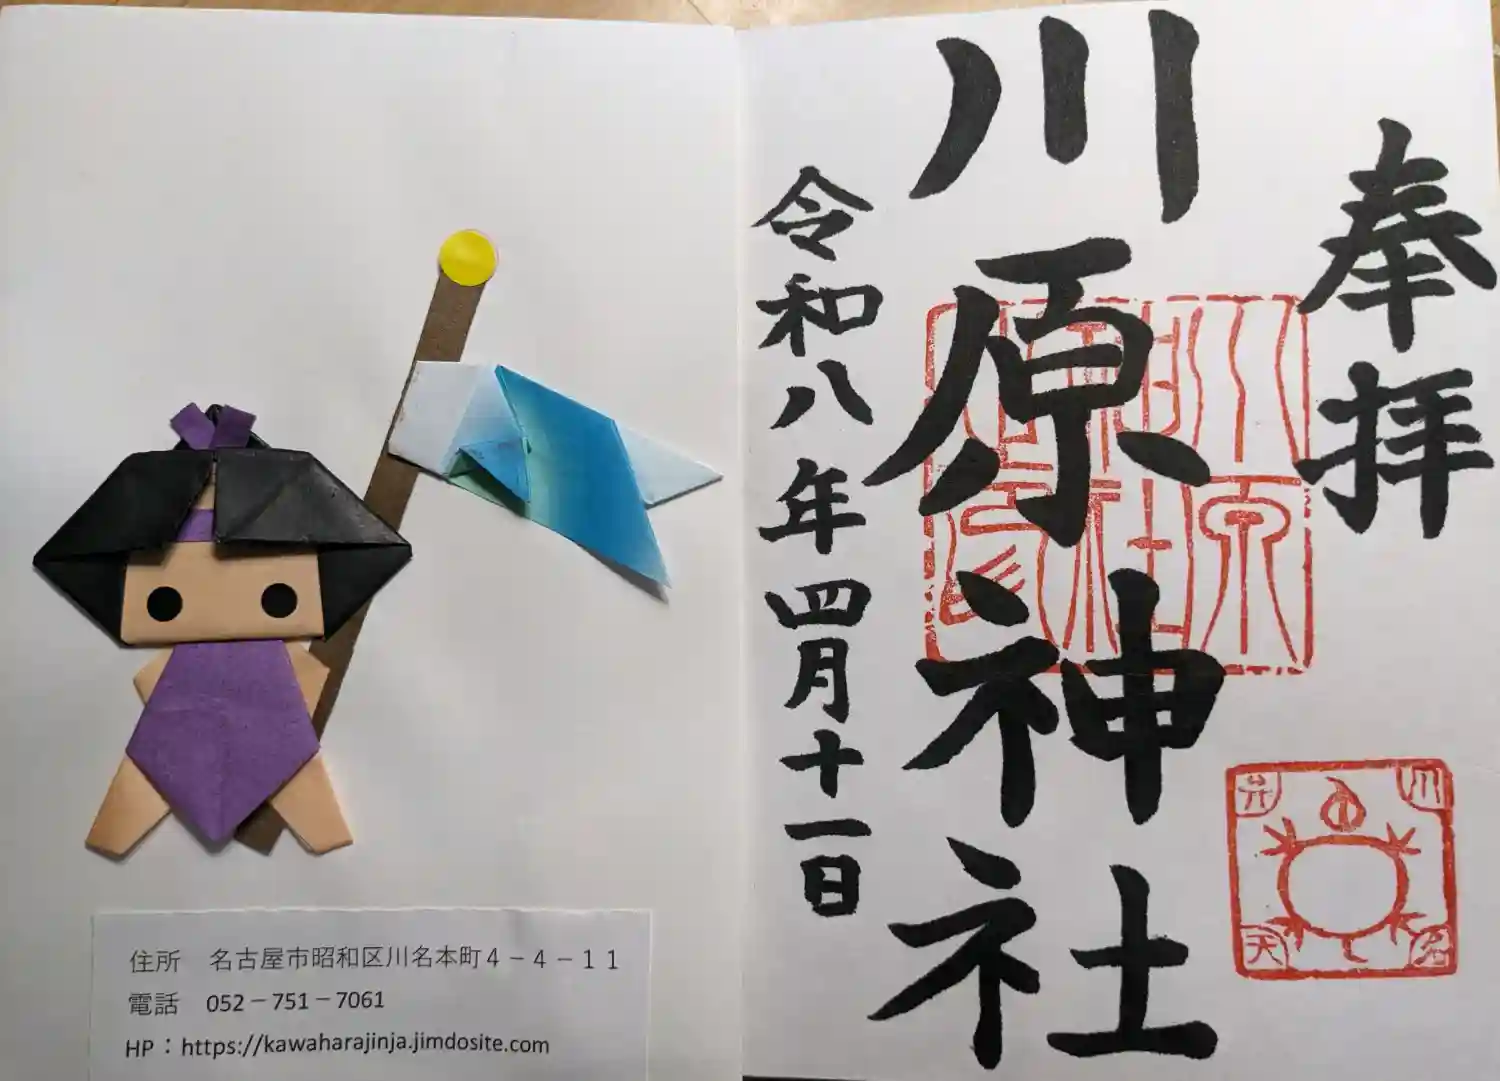 奉拝
川原神社
令和八年四月十一日
川原
神社
川名
弁天
住所　名古屋市昭和区川名本町４－４－１１
電話　052－751－7061
HP：https://kawaharajinja.jimdosite.com